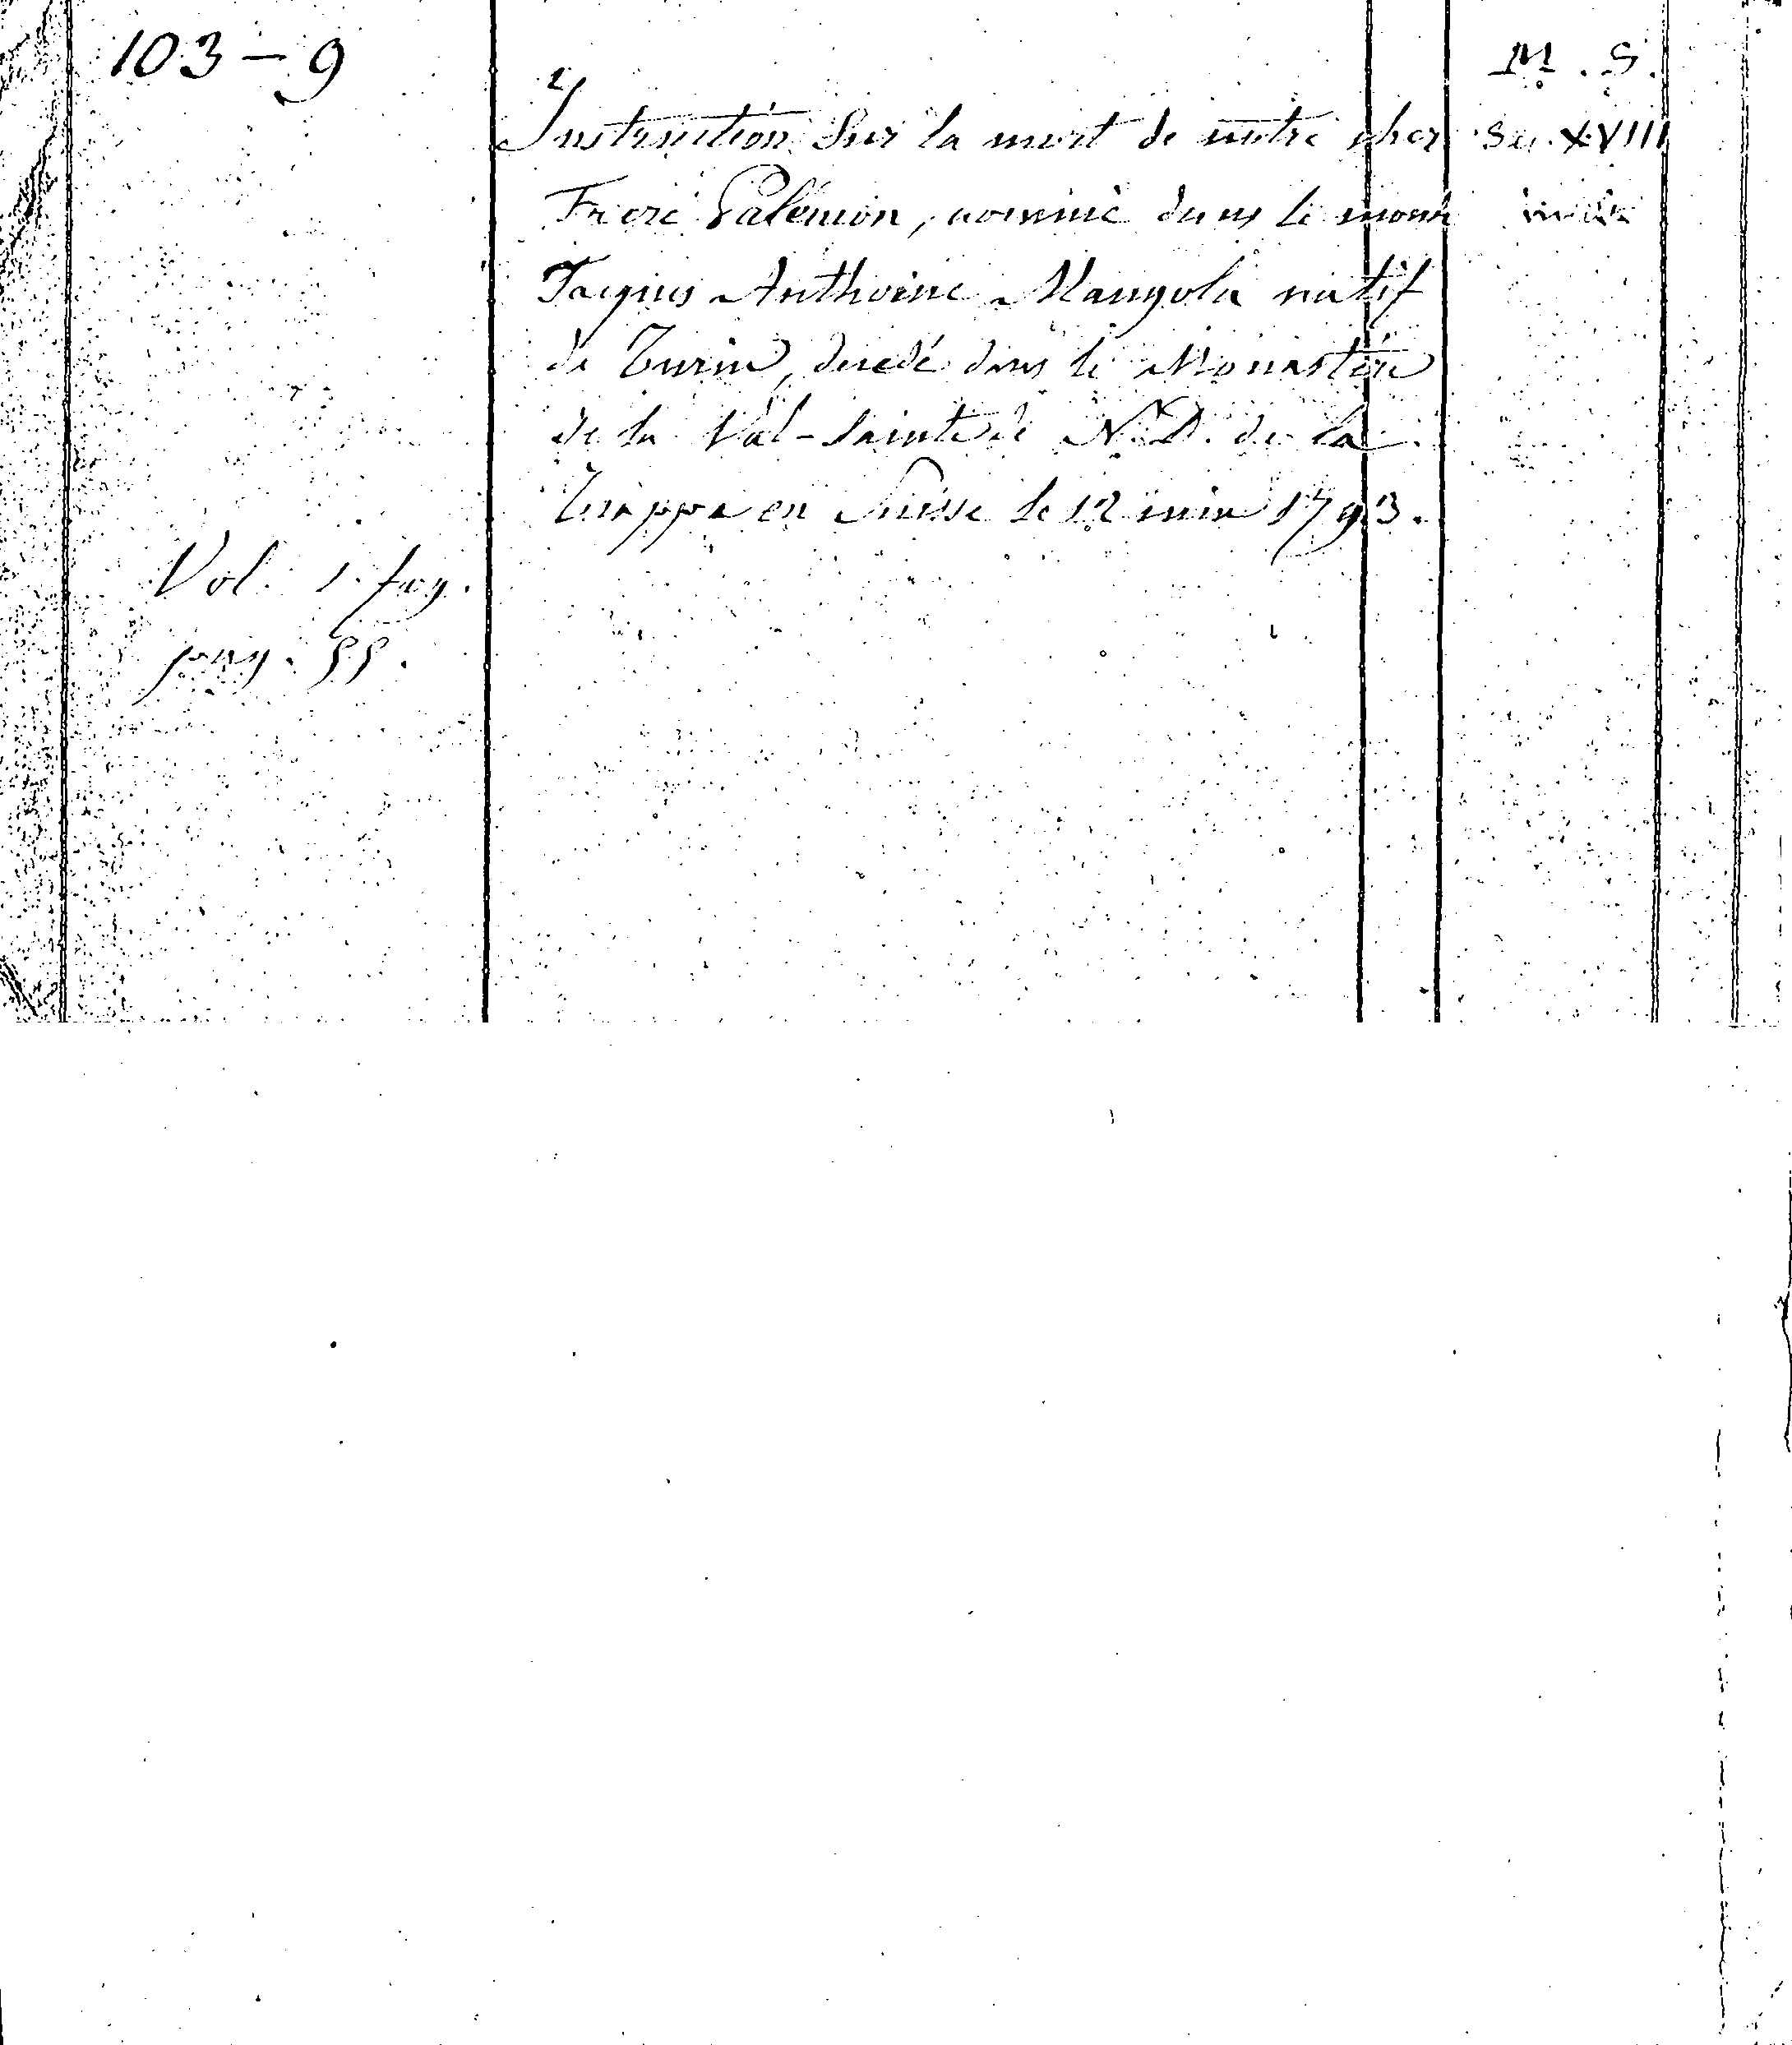 103-9
M. S.
Instruction Sur la mort de notre cher
Se. XVIII
Frere Palémon, nommé dans le monde
Jaques Anthoine Mangola natif
de Turin, decedé dans le Monastère
de la Val-Sainte de N. D. de la
Trappe en Suisse le 12 1793.
Vol. 1.
pag. 55.